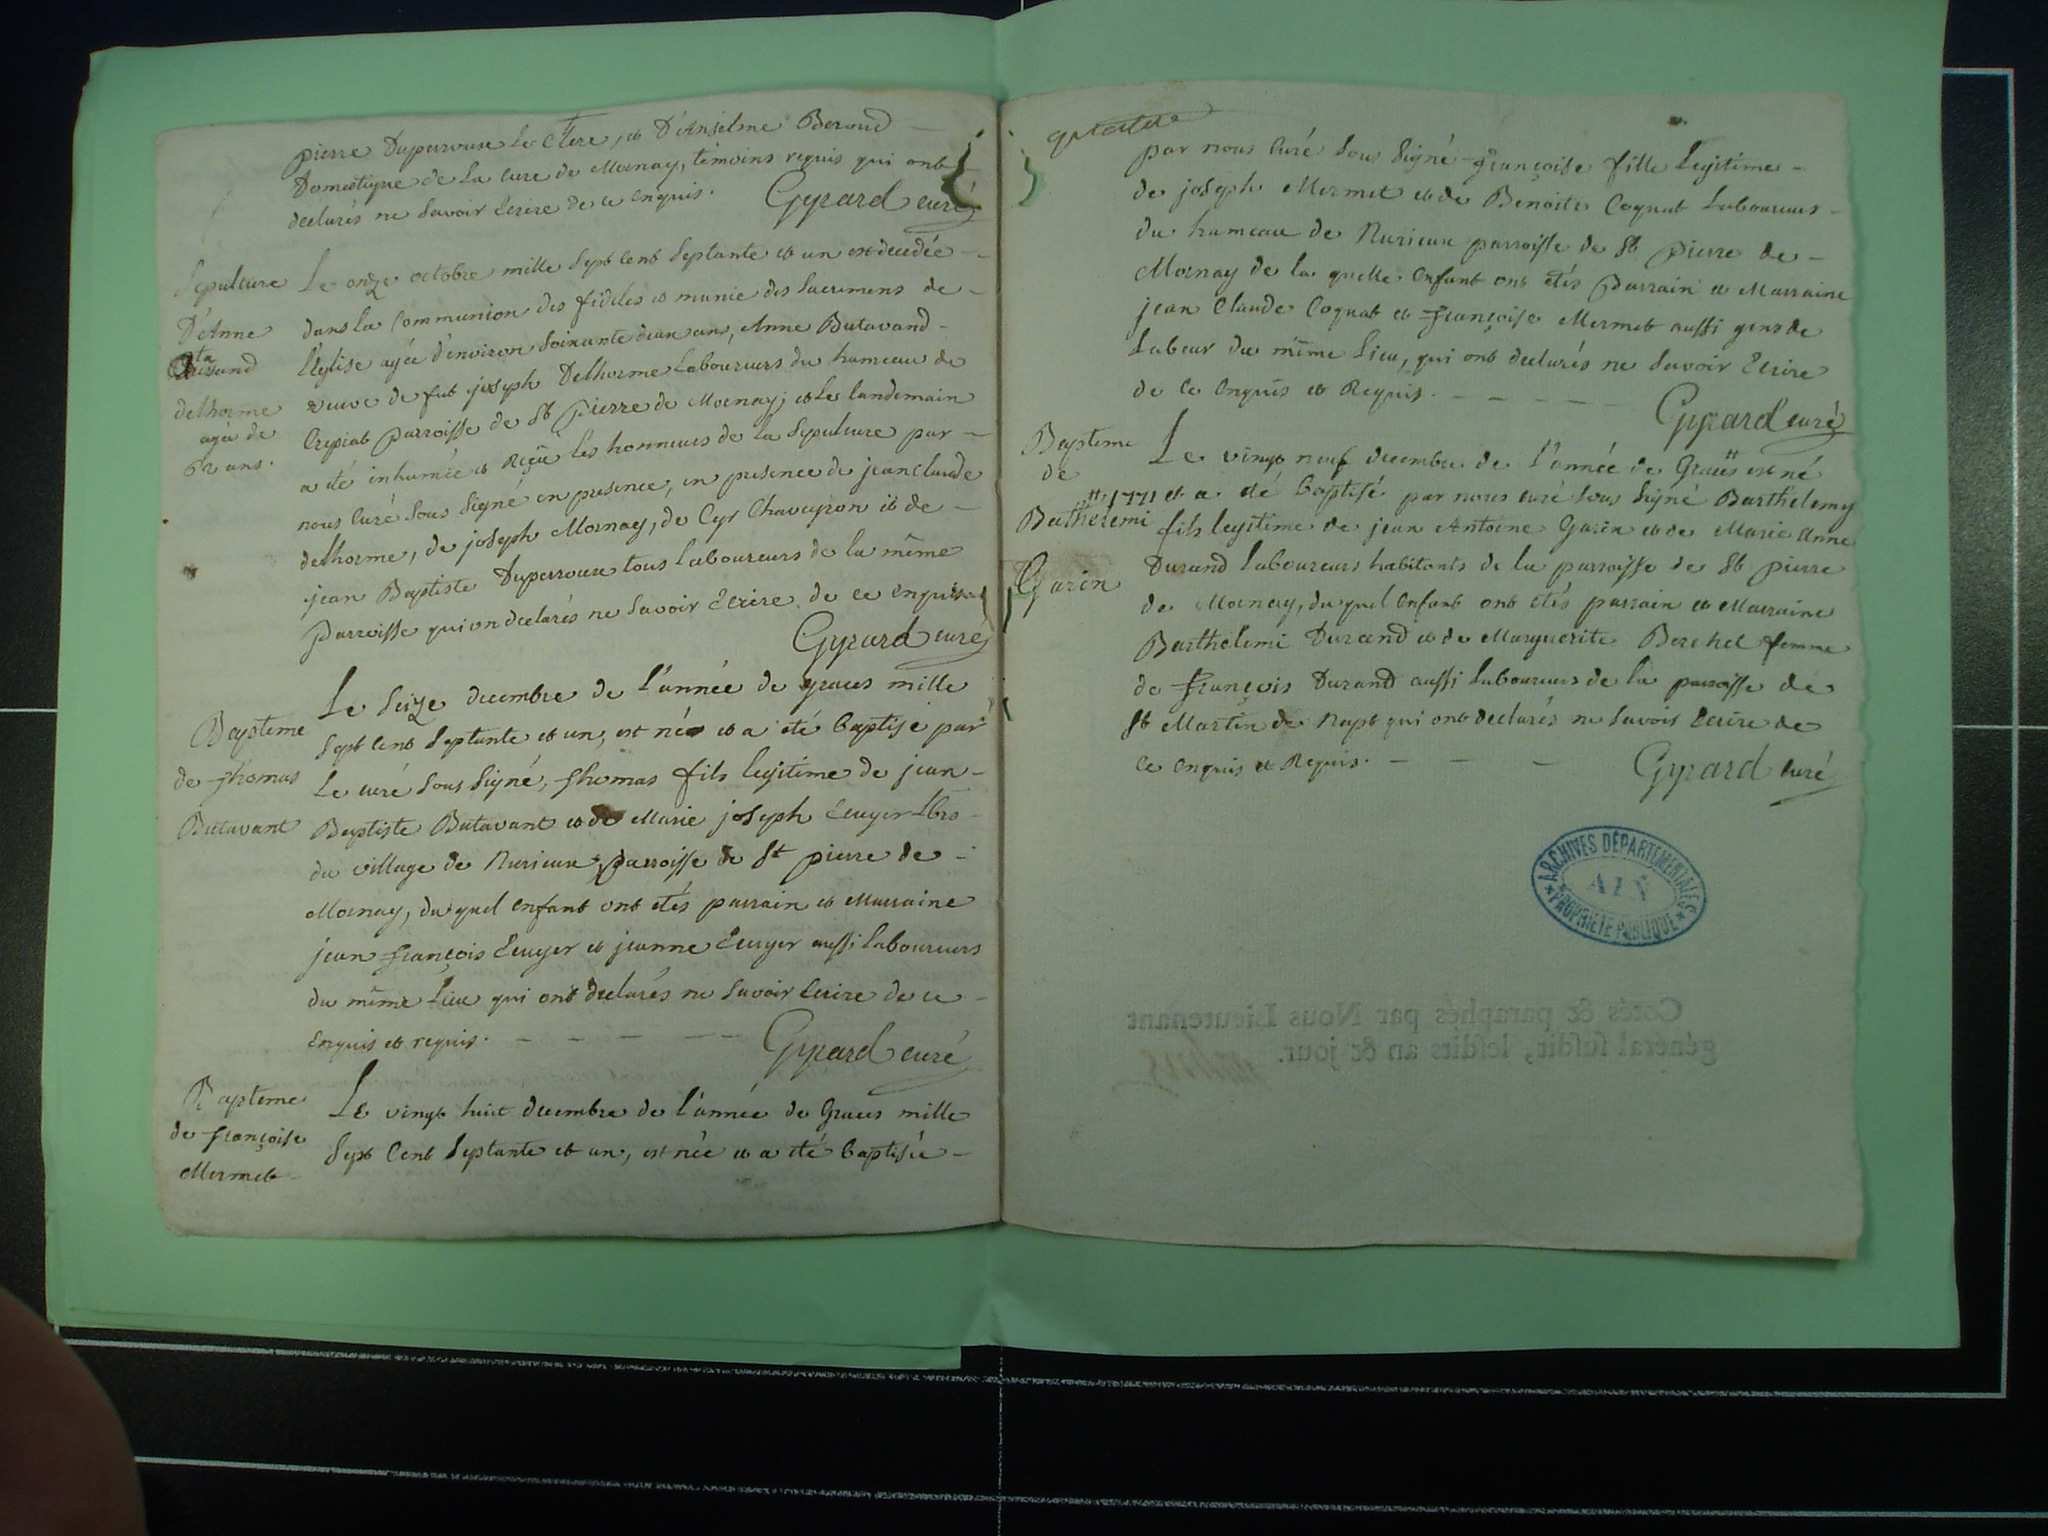 pierre Duperroux Le Clerc, et D'Anselme Beroud
Domestique de La cure de Mornay, témoins requis qui ont
declarés ne Savoir Ecrire de ce enquis. Gyrard curé
Sepulture
D'Anne
Butavand
delhorme
agée de
62 ans.
Le onze octobre mille Sept Cent Septante et un est decedée
dans La Communion des fideles et munie des Sacremens de
l'Eglise agée d'environ Soixante deux ans, Anne Butavand
veuve de fut joseph Delhorme Laboureurs du hameau de
Crepiat parroisse de St Pierre de Mornay; et Le landemain
a été inhumée et Reçüe les honneurs de la Sepulture par
nous Curé Sous Signé en presence, en presence de jean claude
delhorme, de joseph Mornay, de Cyr Chaveyron et de
jean Baptiste Duperroux tous Laboureurs de la même
parroisse qui on declarés ne Savoir Ecrire de ce enquis
Gyrard curé
Bapteme
de Thomas
Butavant
Le Seize decembre de l'année de graces mille
Sept Cent Septante et un, est né et a été baptisé par
Le curé Sous Signé, Thomas fils legitime de jean
Baptiste Butavant et de Marie joseph Ecuyer Lbrs
du village de Nurieux parroisse de St pierre de
Mornay, du quel enfant ont étés parrain et Marraine
jean françois Ecuyer et jeanne Ecuyer aussi Laboureurs
du même Lieu qui ont declarés ne Savoir Ecrire de ce
Enquis et requis. Gyrard curé
Bapteme
de françoise
Mermet
Le vingt huit decembre de l'année de Graces mille
Sept Cent Septante et un, est née et a été baptisée
par nous Curé Sous Signé françoise fille Legitime
de joseph Mermet et de Benoite Cognat Laboureurs
du hameau de Nurieux parroisse de St Pierre de
Mornay de la quelle enfant ont étés Parrain et Marraine
jean Claude Cognat et françoise Mermet aussi gens de
Labeur du même Lieu, qui ont declarés ne Savoir Ecrire
de Ce Enquis et Requis.
Gyrard curé
Bapteme
de
Barthelemi
Garin
Le vingt neuf decembre de l'année de Graces est né
1771 et a été baptisé par nous curé Sous Signé Barthelemy
fils legitime de jean Antoine Garin et de Marie Anne
Durand Laboureurs habitants de la parroisse de St Pierre
de Mornay, du quel enfant ont étés parrain et Marraine
Barthelemi Durand et de Marguerite Berchet femme
de François Durand aussi Laboureurs de la parroisse de
St Martin de Napt qui ont declarés ne Savoir Ecrire de
Ce Enquis et Requis. Gyrard Curé
ARCHIVES DÉPARTEMENTALES
AIN
PROPRIÉTÉ PUBLIQUE
Cotés & paraphés par Nous Lieutenant
général susdit, lesdits an & jour.